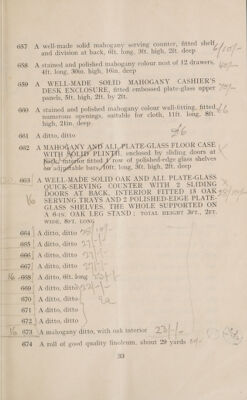 657 A well-made solid mahogany serving counter, fitted shelf
and division at back, 6ft. long, 3ft. high, 2ft. deep
658 A stained and polished mahogany colour nest of 12 drawers,
4ft. long, 30in. high, 16in. deep
659 A WELL-MADE SOLID MAHOGANY CASHIER'S
DESK ENCLOSURE, fitted embossed plate-glass upper
panels, 5ft. high, 2ft. by 2ft.
660 A stained and polished mahogany colour wall-fitting, fitted
numerous openings, suitable for cloth, 11ft. long, 8ft.
high, 24in. deep
661 A ditto, ditto
662 A MAHOGANY AND ALL PLATE-GLASS FLOOR CASE
WITH SOLID PLINTH, enclosed by sliding doors at
back, interior fitted 4 row of polished-edge glass shelves
on adjustable bars, 10ft. long, 3ft. high, 2ft. deep
663 A WELL-MADE SOLID OAK AND ALL PLATE-GLASS
QUICK-SERVING COUNTER WITH 2 SLIDING
DOORS AT BACK, INTERIOR FITTED 15 OAK
SERVING TRAYS AND 2 POLISHED-EDGE PLATE-
GLASS SHELVES, THE WHOLE SUPPORTED ON
A 6-IN. OAK LEG STAND: TOTAL HEIGHT 3FT., 2FT.
WIDE, 8FT. LONG
664 A ditto, ditto
665 A ditto, ditto
666 A ditto, ditto
667 A ditto, ditto
668 A ditto, 6ft. long
669 A ditto, ditto
670 A ditto, ditto
671 A ditto, ditto
672 A ditto, ditto
673 A mahogany ditto, with oak interior
674 A roll of good quality linoleum, about 29 yards
33